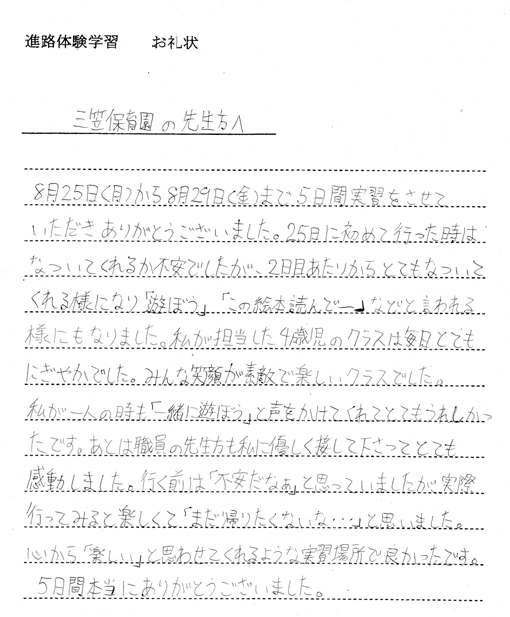 進路体験学習　　お礼状
三笠保育園の先生方へ
8月25日(月)から8月29日(金)まで、5日間実習をさせて
いただきありがとうございました。25日に初めて行った時は
なついてくれるか不安でしたが、2日目あたりからとてもなついて
くれる様になり「遊ぼう」「この絵本読んでー」などと言われる
様にもなりました。私が担当した4歳児のクラスは毎日とても
にぎやかでした。みんな笑顔が素敵で楽しいクラスでした。
私が一人の時も「一緒に遊ぼう」と声をかけてくれてとてもうれしかっ
たです。あとは職員の先生方も私に優しく接して下さってとても
感動しました。行く前は「不安だなぁ」と思っていましたが実際
行ってみると楽しくて「まだ帰りたくないな…」と思いました。
心から「楽しい」と思わせてくれるような実習場所で良かったです。
5日間本当にありがとうございました。